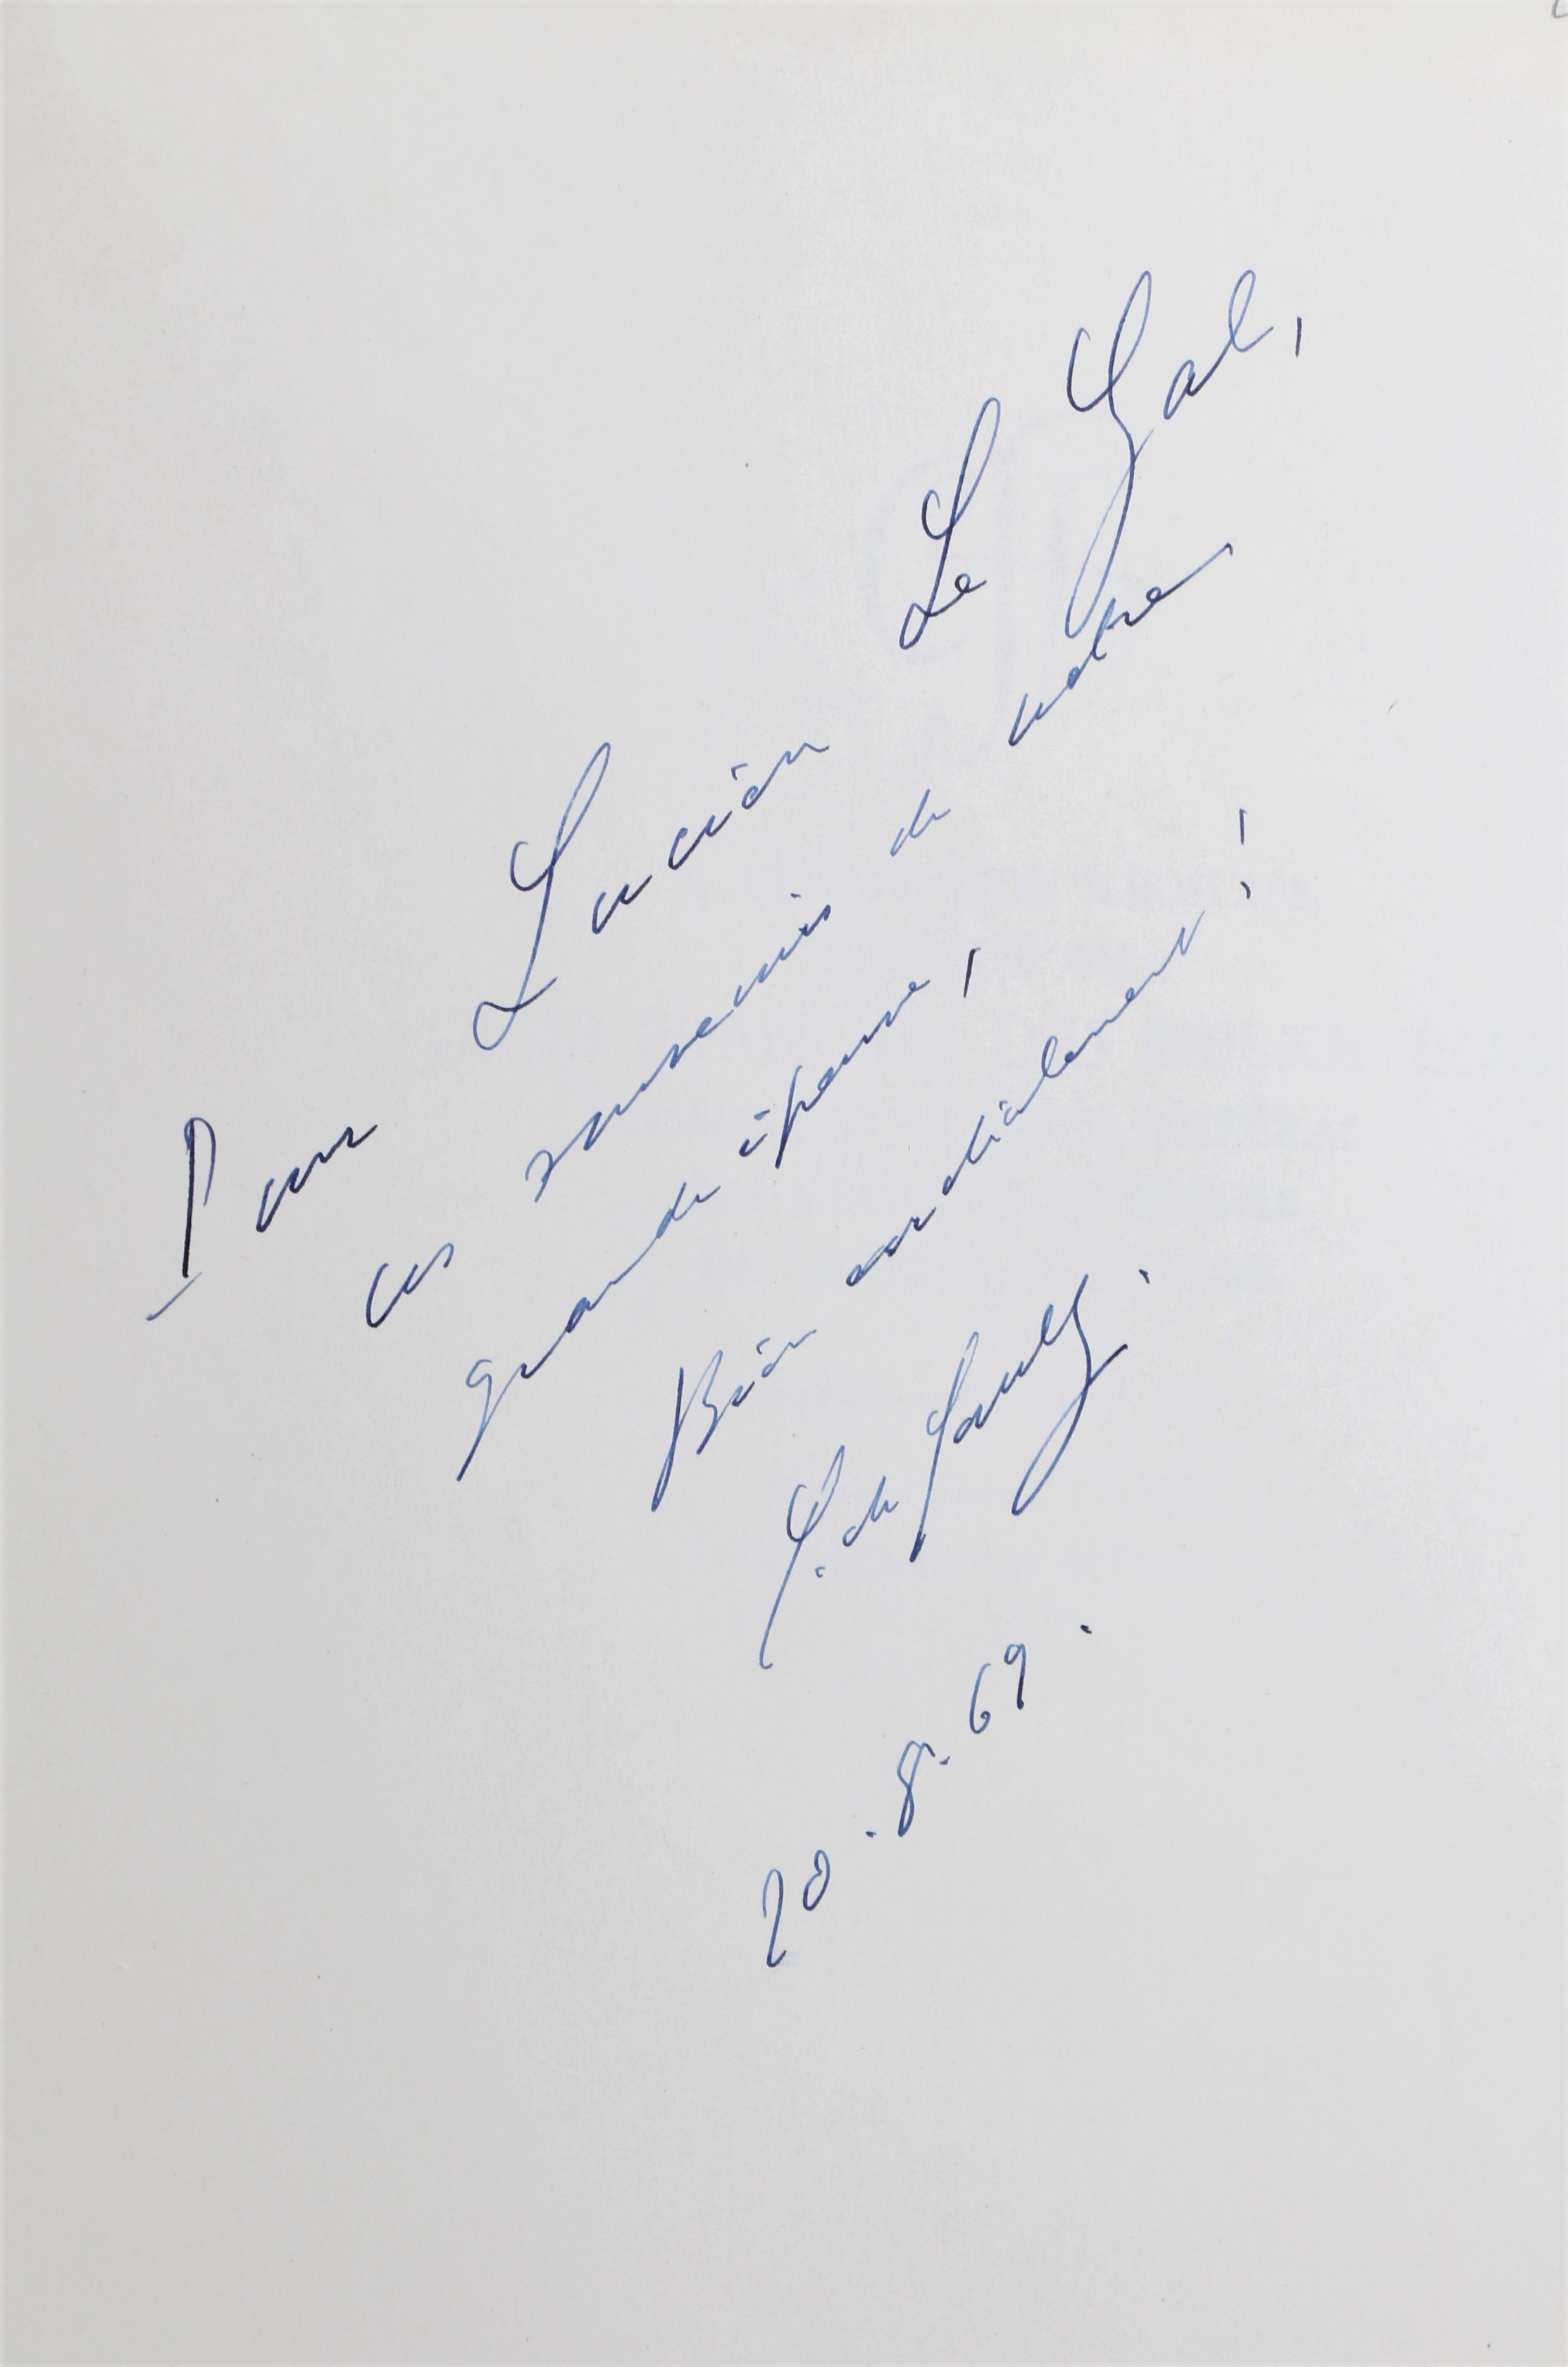 Pour Lucien Le Gal,
ces souvenirs de notre
grande épreuve,
Bien cordialement !
G. de Gaulle.
20.8.69.